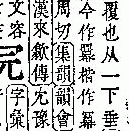 覆也从一下垂
今作冪楷作冪
周切集韻韻會
漢來歙傳冘豫
文容
字彙